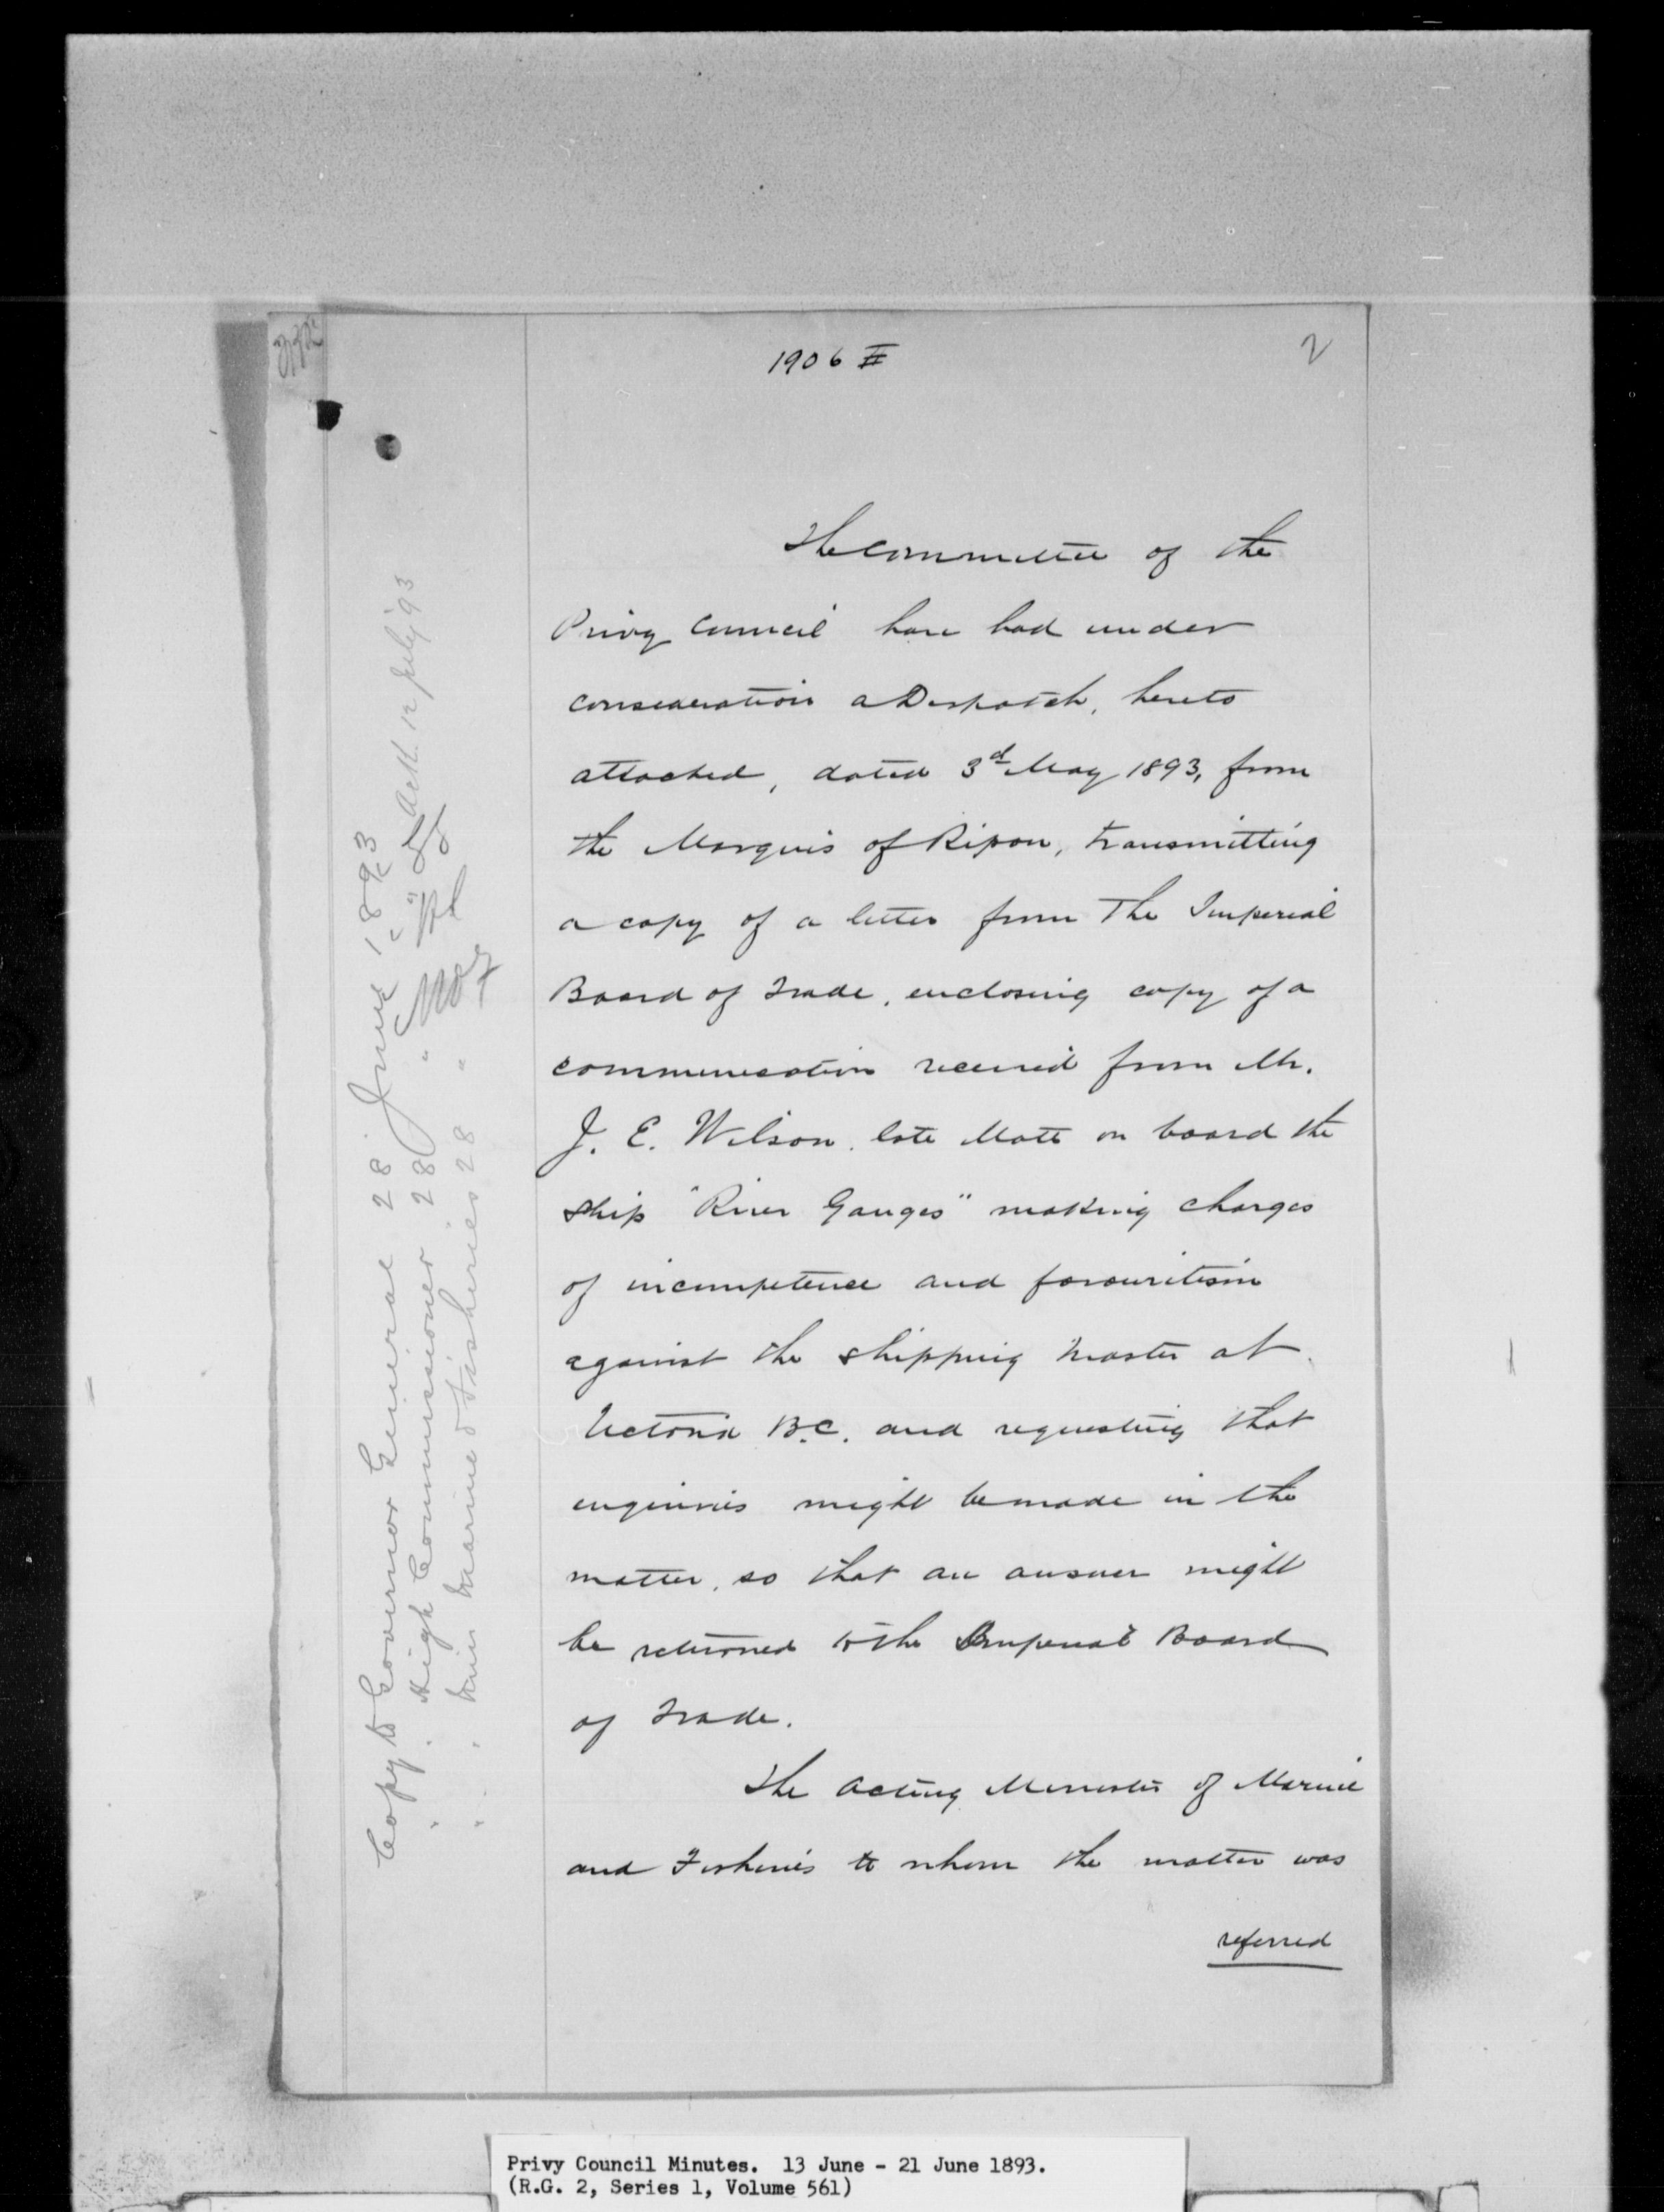 1906 II
2
The Committee of the
Privy Council have had under
consideration a Despatch, hereto
attached, dated 3d May 1893, from
the Marquis of Ripon, transmitting
a copy of a letter from The Imperial
Board of Trade, enclosing copy of a
communication received from Mr.
J. E. Wilson, late Mate on board the
ship "River Ganges" making charges
of incompetence and favouritism
against the shipping Master at
Victoria B.C. and requesting that
enquiries might be made in the
matter, so that an answer might
be returned to the Imperial Board
of Trade.
The Acting Minister of Marine
and Fisheries to whom the matter was
referred
Copy to Governor General 28 June 1893
" " High Commissioner 28 " "
" " Min Marine & Fisheries 28 "
Ack. 12 July '93
Privy Council Minutes. 13 June - 21 June 1893.
(R.G. 2, Series 1, Volume 561)